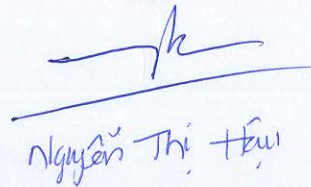 Nguyễn Thị Hậu